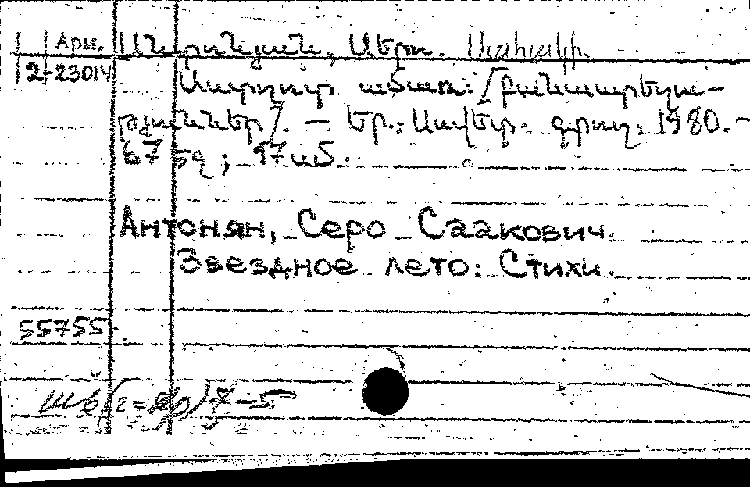 Арм. Անտոնյան, Սերո. Սահակի
2-23014 Աստղոտ ամառ: [Բանաստեղծու-
թյուններ]. — Եր.: Սովետ. գրող, 1980. —
67 էջ; 17 սմ.
Антонян, Серо Саакович.
Звездное лето: Стихи.
55755